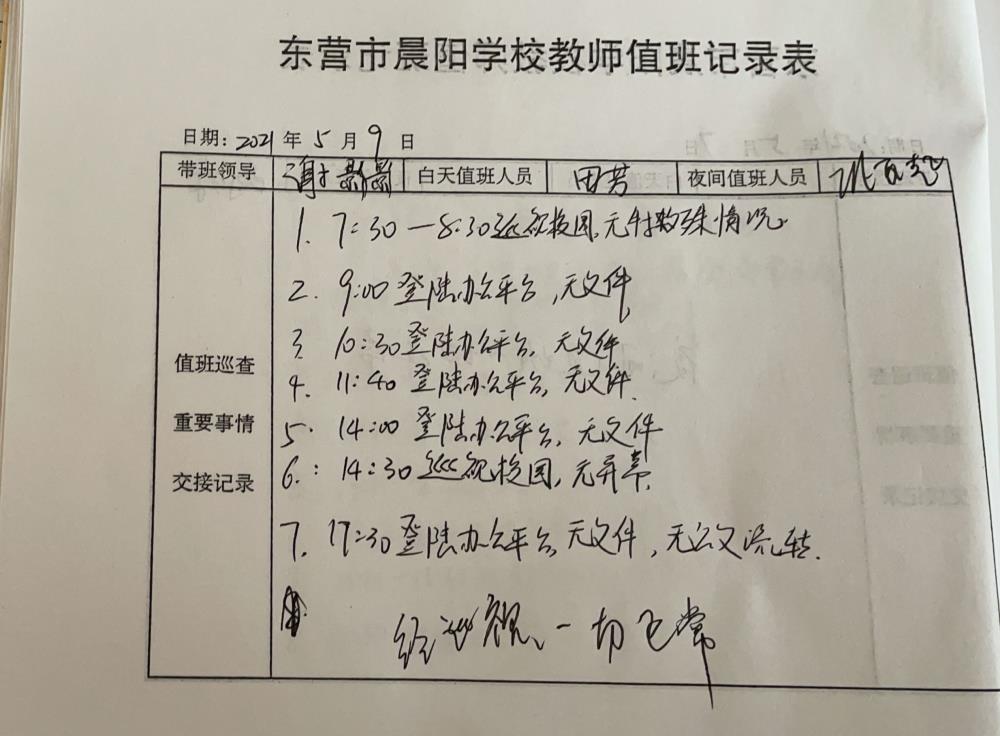 东营市晨阳学校教师值班记录表
日期: 2021 年 5 月 9 日
带班领导 谢影影 白天值班人员 田芳 夜间值班人员
1. 7:30 — 8:30巡视校园,无特殊情况
2. 9:00 登陆办公平台,无文件
3. 10:30登陆办公平台, 无文件
值班巡查
4. 11:40 登陆办公平台, 无文件.
重要事情
5. 14:00 登陆办公平台, 无文件
交接记录
6.: 14:30 巡视校园, 无异常.
7. 17:30 登陆办公平台, 无文件, 无公文流转.
经巡视、一切正常